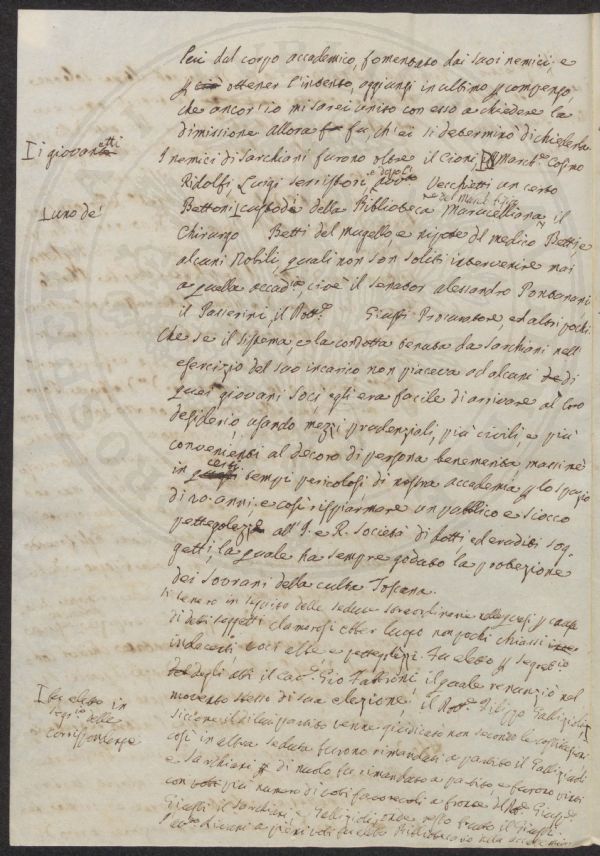 lui dal corpo accademico, fomentato dai suoi nemici, e
p ottener l'intento, aggiunsi in ultimo p compenso
che ancor io mi sarei unito con esso a chiedere la
dimissione allora fu, ch'ei si determinò di chiederla.
I i giovanetti
I nemici di Sarchiani furono oltre il Cioni, March. Cosimo
Ridolfi, Luigi Serristori, Vecchietti un certo
L uno de'
Bettoni custode della Biblioteca Marucelliana, il
Chirurgo Betti del Mugello, e nipote del medico Betti, e
alcuni Nobili, quali non son soliti intervenire mai
a quella accad. cioè il Senator Alessandro Pontanari
il Passerini, il Dott. Giusti Procuratore, ed altri pochi.
Che se il sistema, e la condotta tenuta da Sarchiani nell'
esercizio del suo incarico non piaceva ad alcuni di
quei giovani soci, egli era facile di arrivare al loro
desiderio usando mezzi prudenziali, più civili, e più
convenienti al decoro di persona benemerita, massime
in certi tempi pericolosi di nostra accademia p lo spazio
di 20. anni, e così risparmiare un pubblico e sciocco
pettegolezzo all' I. e R. Società di dotti, ed eruditi sog-
getti, la quale ha sempre goduto la protezione
dei Sovrani della culta Toscana.
Si tenero in seguito delle sedute straordinarie nelle quali p causa
di detti soggetti clamorosi ebber luogo non pochi chiassi
indecenti, voci alte, e pettegolezzi. Fu eletto p segret.
degli atti il cav. Gio Fabbroni, il quale renunziò nel
I fu eletto in
segr. delle
corrispondenze
momento stesso di sua elezione; il Dott. Filippo Gallizioli
siccome il di lui partito venne giudicato non secondo le costituzioni
così in altra seduta furono rimandati a partito il Gallizioli
e Sarchiani di nuovo fu rimandato a partito, e furono vinti
con più numero di voti favorevoli a fronte del Dott. Giusti
Giusti il Sarchiani, e Gallizioli resto il Giusti
a pieni voti fu eletto Bibliotecario della accademia